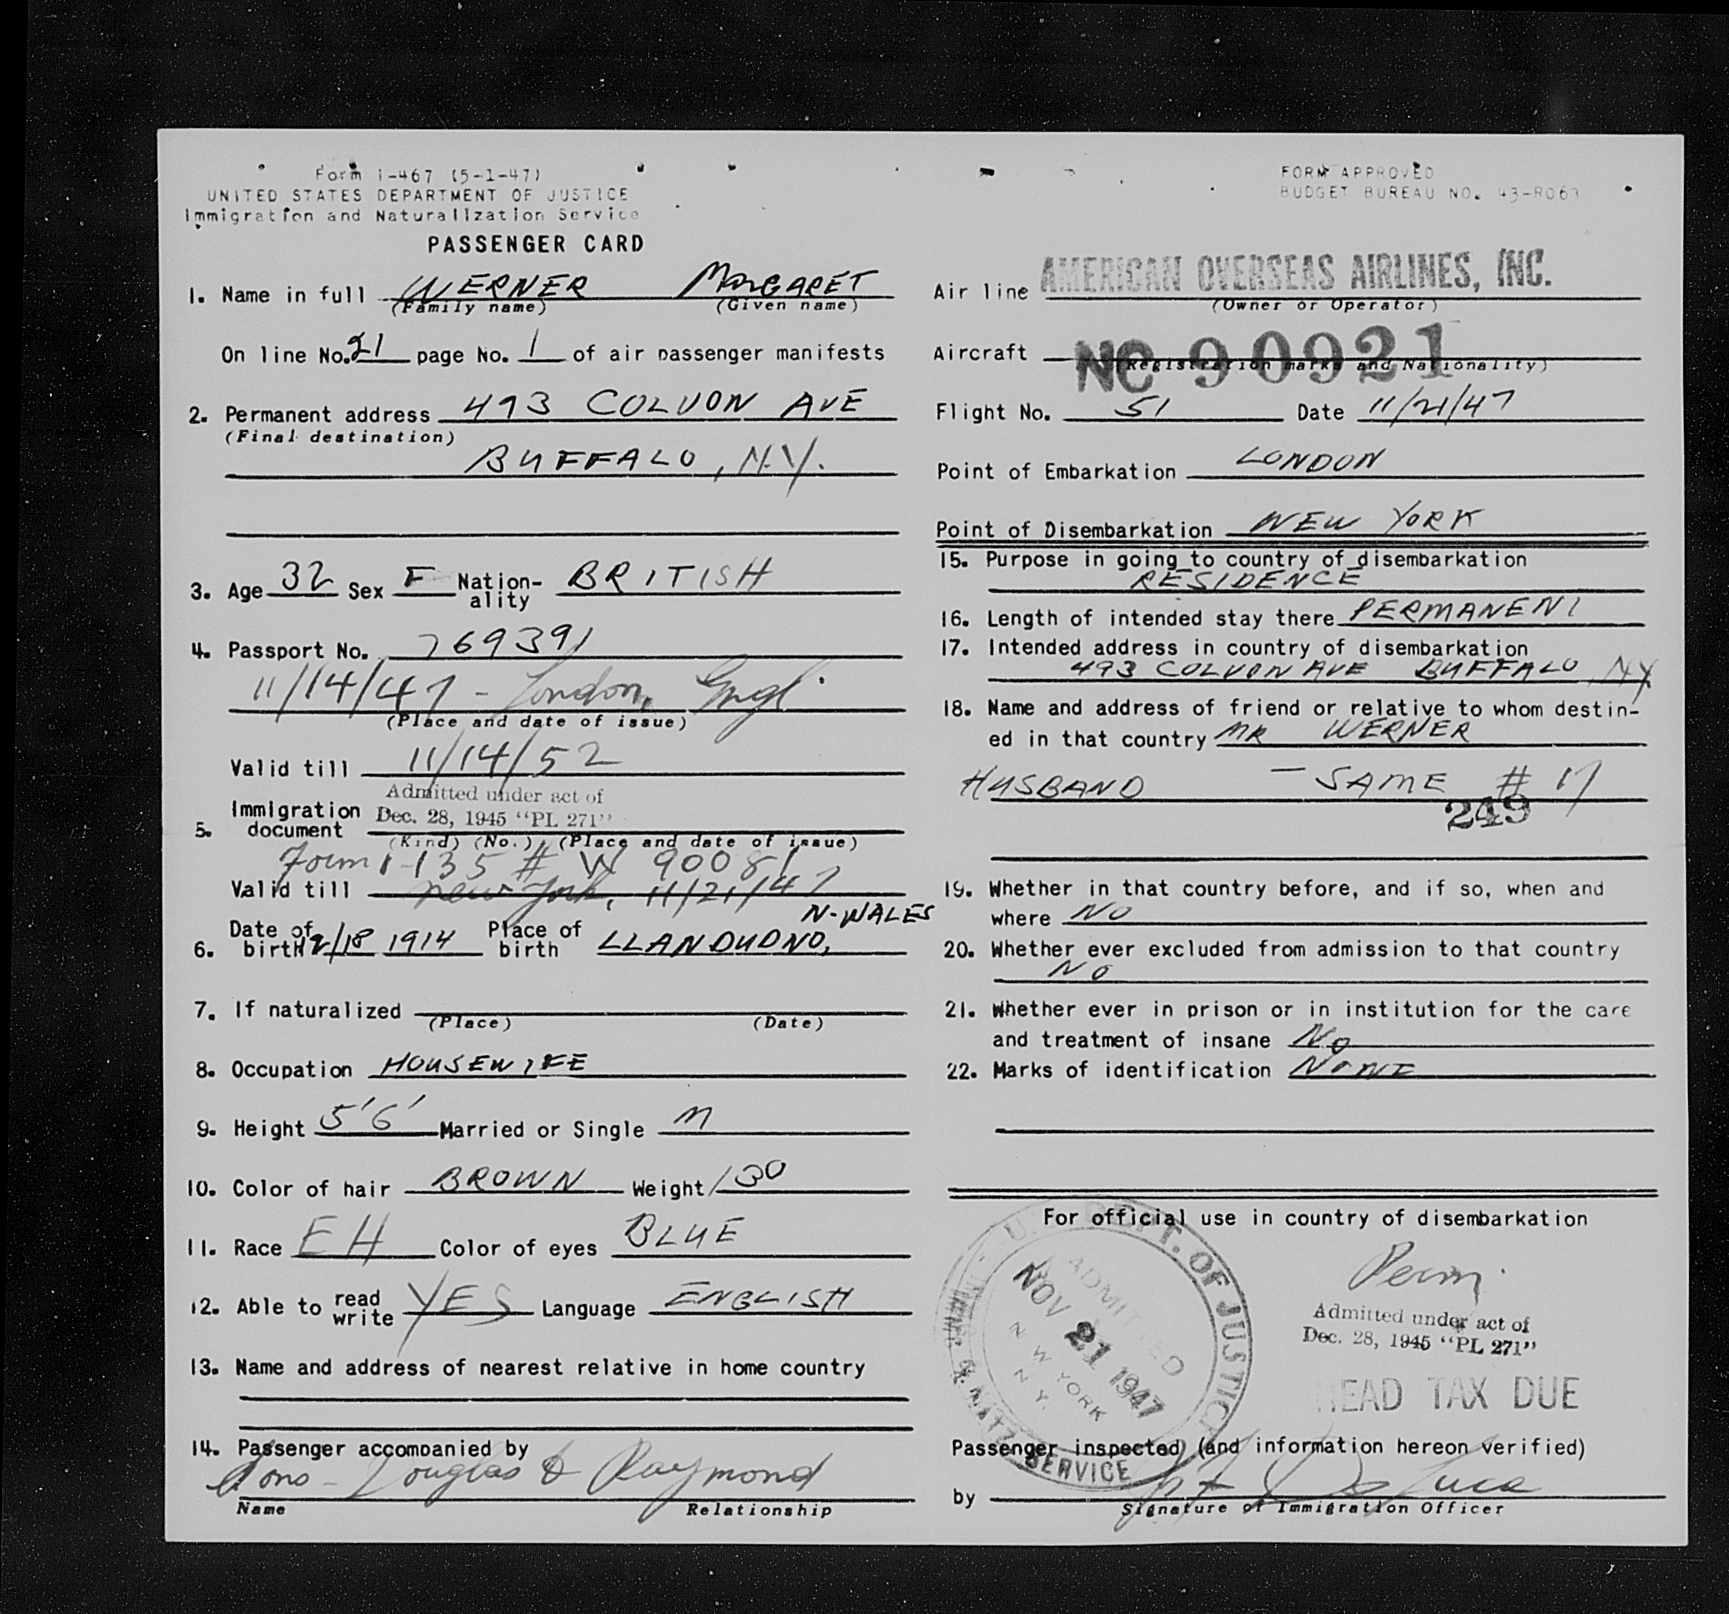 Form I-467 (5-1-47)
UNITED STATES DEPARTMENT OF JUSTICE
Immigration and Naturalization Service
PASSENGER CARD
1. Name in full WERNER MARGARET
(Family name) (Given name)
On line No. 21 page No. 1 of air passenger manifests
2. Permanent address 493 COLVON AVE
(Final destination)
BUFFALO, N.Y.
3. Age 32 Sex F Nation-ality BRITISH
4. Passport No. 769391
11/14/47 - London, Engl.
(Place and date of issue)
Valid till 11/14/52
Admitted under act of
5. Immigration document Dec. 28, 1945 "PL 271"
(Kind) (No.) (Place and date of issue)
Form I-135 # W 90081
Valid till New York, 11/21/47
6. Date of birth 2/18 1914 Place of birth LLANDUDNO, N-WALES
7. If naturalized
(Place) (Date)
8. Occupation HOUSEWIFE
9. Height 5'6' Married or Single M
10. Color of hair BROWN Weight 130
11. Race EH Color of eyes BLUE
12. Able to read write YES Language ENGLISH
13. Name and address of nearest relative in home country
14. Passenger accompanied by
Sons - Douglas & Raymond
Name Relationship
FORM APPROVED
BUDGET BUREAU NO. 43-R063
Air line AMERICAN OVERSEAS AIRLINES, INC.
(Owner or Operator)
Aircraft NC 90921
(Registration marks and Nationality)
Flight No. 51 Date 11/21/47
Point of Embarkation LONDON
Point of Disembarkation NEW YORK
15. Purpose in going to country of disembarkation
RESIDENCE
16. Length of intended stay there PERMANENT
17. Intended address in country of disembarkation
493 COLVON AVE BUFFALO NY
18. Name and address of friend or relative to whom destin-
ed in that country MR WERNER
HUSBAND - SAME # 17
249
19. Whether in that country before, and if so, when and
where NO
20. Whether ever excluded from admission to that country
NO
21. Whether ever in prison or in institution for the care
and treatment of insane NO
22. Marks of identification NONE
For official use in country of disembarkation
U.S. DEPT. OF JUSTICE
IMMI. & NATZ. SERVICE
ADMITTED
NOV 21 1947
N W YORK
N Y.
Perm.
Admitted under act of
Dec. 28, 1945 "PL 271"
HEAD TAX DUE
Passenger inspected (and information hereon verified)
by De Luca
Signature of Immigration Officer